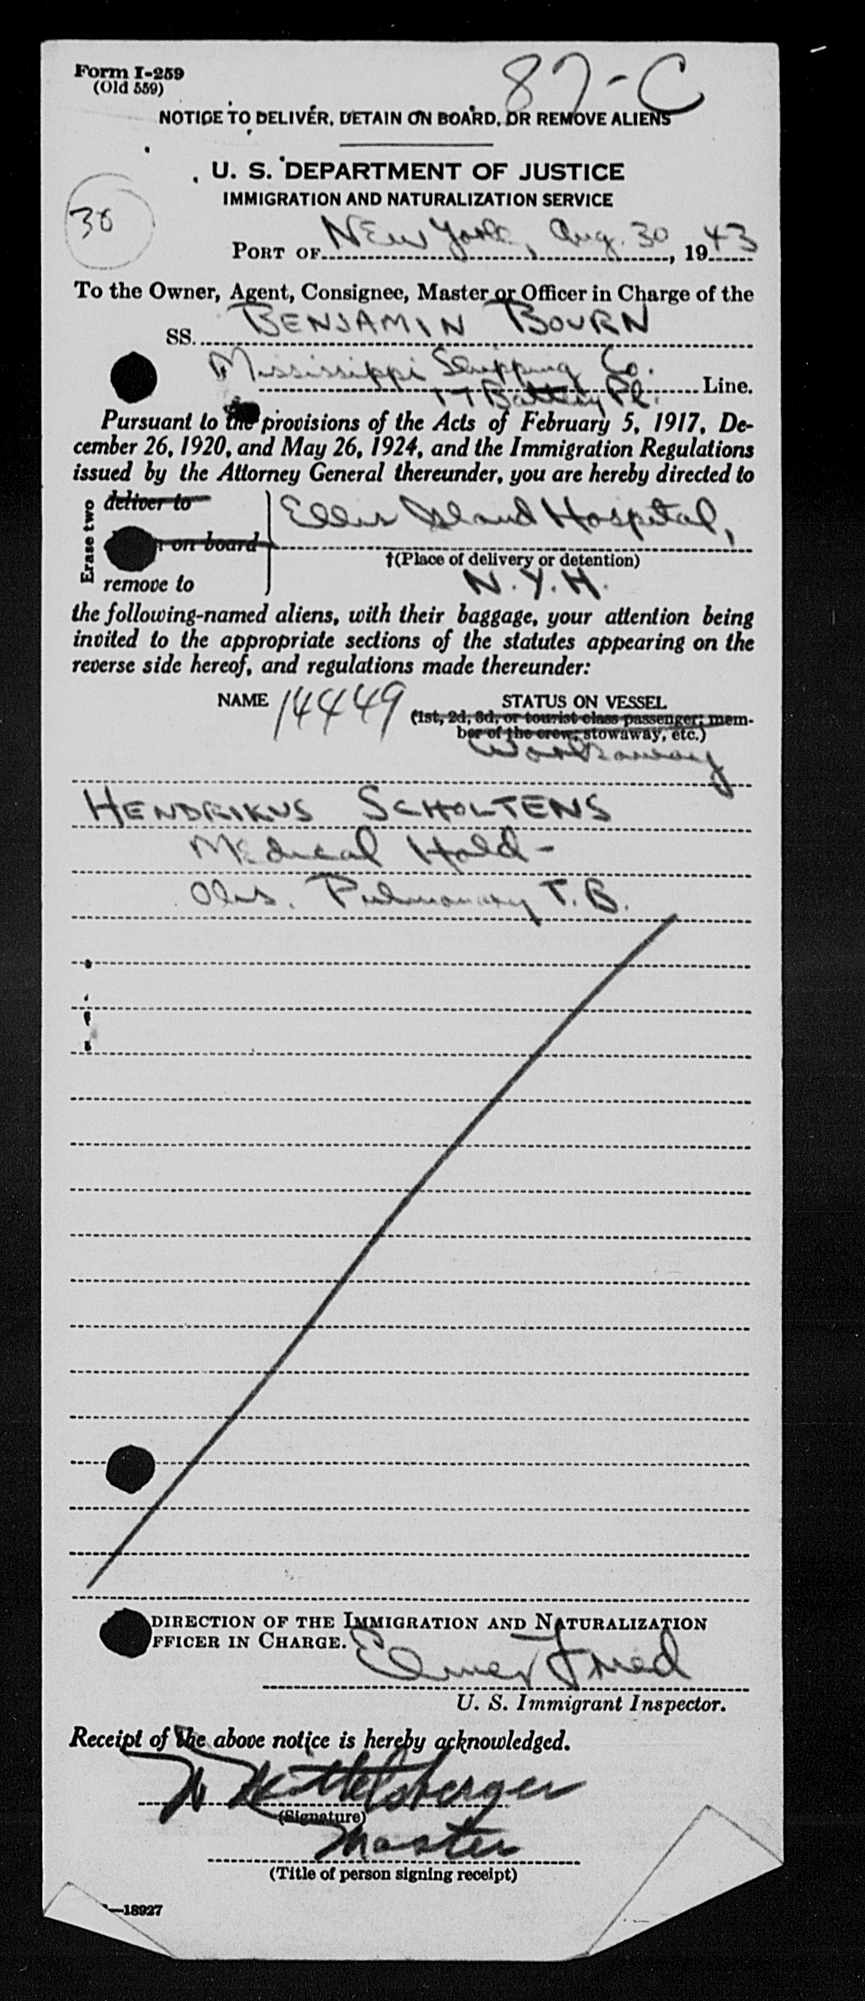 Form I-259
(Old 559)
87-C
NOTICE TO DELIVER, DETAIN ON BOARD, OR REMOVE ALIENS
U. S. DEPARTMENT OF JUSTICE
IMMIGRATION AND NATURALIZATION SERVICE
30
PORT OF New York, Aug. 30, 1943
To the Owner, Agent, Consignee, Master or Officer in Charge of the
SS. BENJAMIN BOURN
Mississippi Shipping Co.
17 Battery Pl. Line.
Pursuant to the provisions of the Acts of February 5, 1917, De-
cember 26, 1920, and May 26, 1924, and the Immigration Regulations
issued by the Attorney General thereunder, you are hereby directed to
Erase two
deliver to
Ellis Island Hospital,
on board
†(Place of delivery or detention)
remove to
N.Y.H.
the following-named aliens, with their baggage, your attention being
invited to the appropriate sections of the statutes appearing on the
reverse side hereof, and regulations made thereunder:
NAME 14449 STATUS ON VESSEL
(1st, 2d, 3d, or tourist class passenger; mem-
ber of the crew; stowaway, etc.)
Workaway
HENDRIKUS SCHOLTENS
Medical Hold-
Obs. Pulmonary T.B.
DIRECTION OF THE IMMIGRATION AND NATURALIZATION
FFICER IN CHARGE.
Elmer Fried
U. S. Immigrant Inspector.
Receipt of the above notice is hereby acknowledged.
W Mittelsberger
(Signature)
Master
(Title of person signing receipt)
—18927